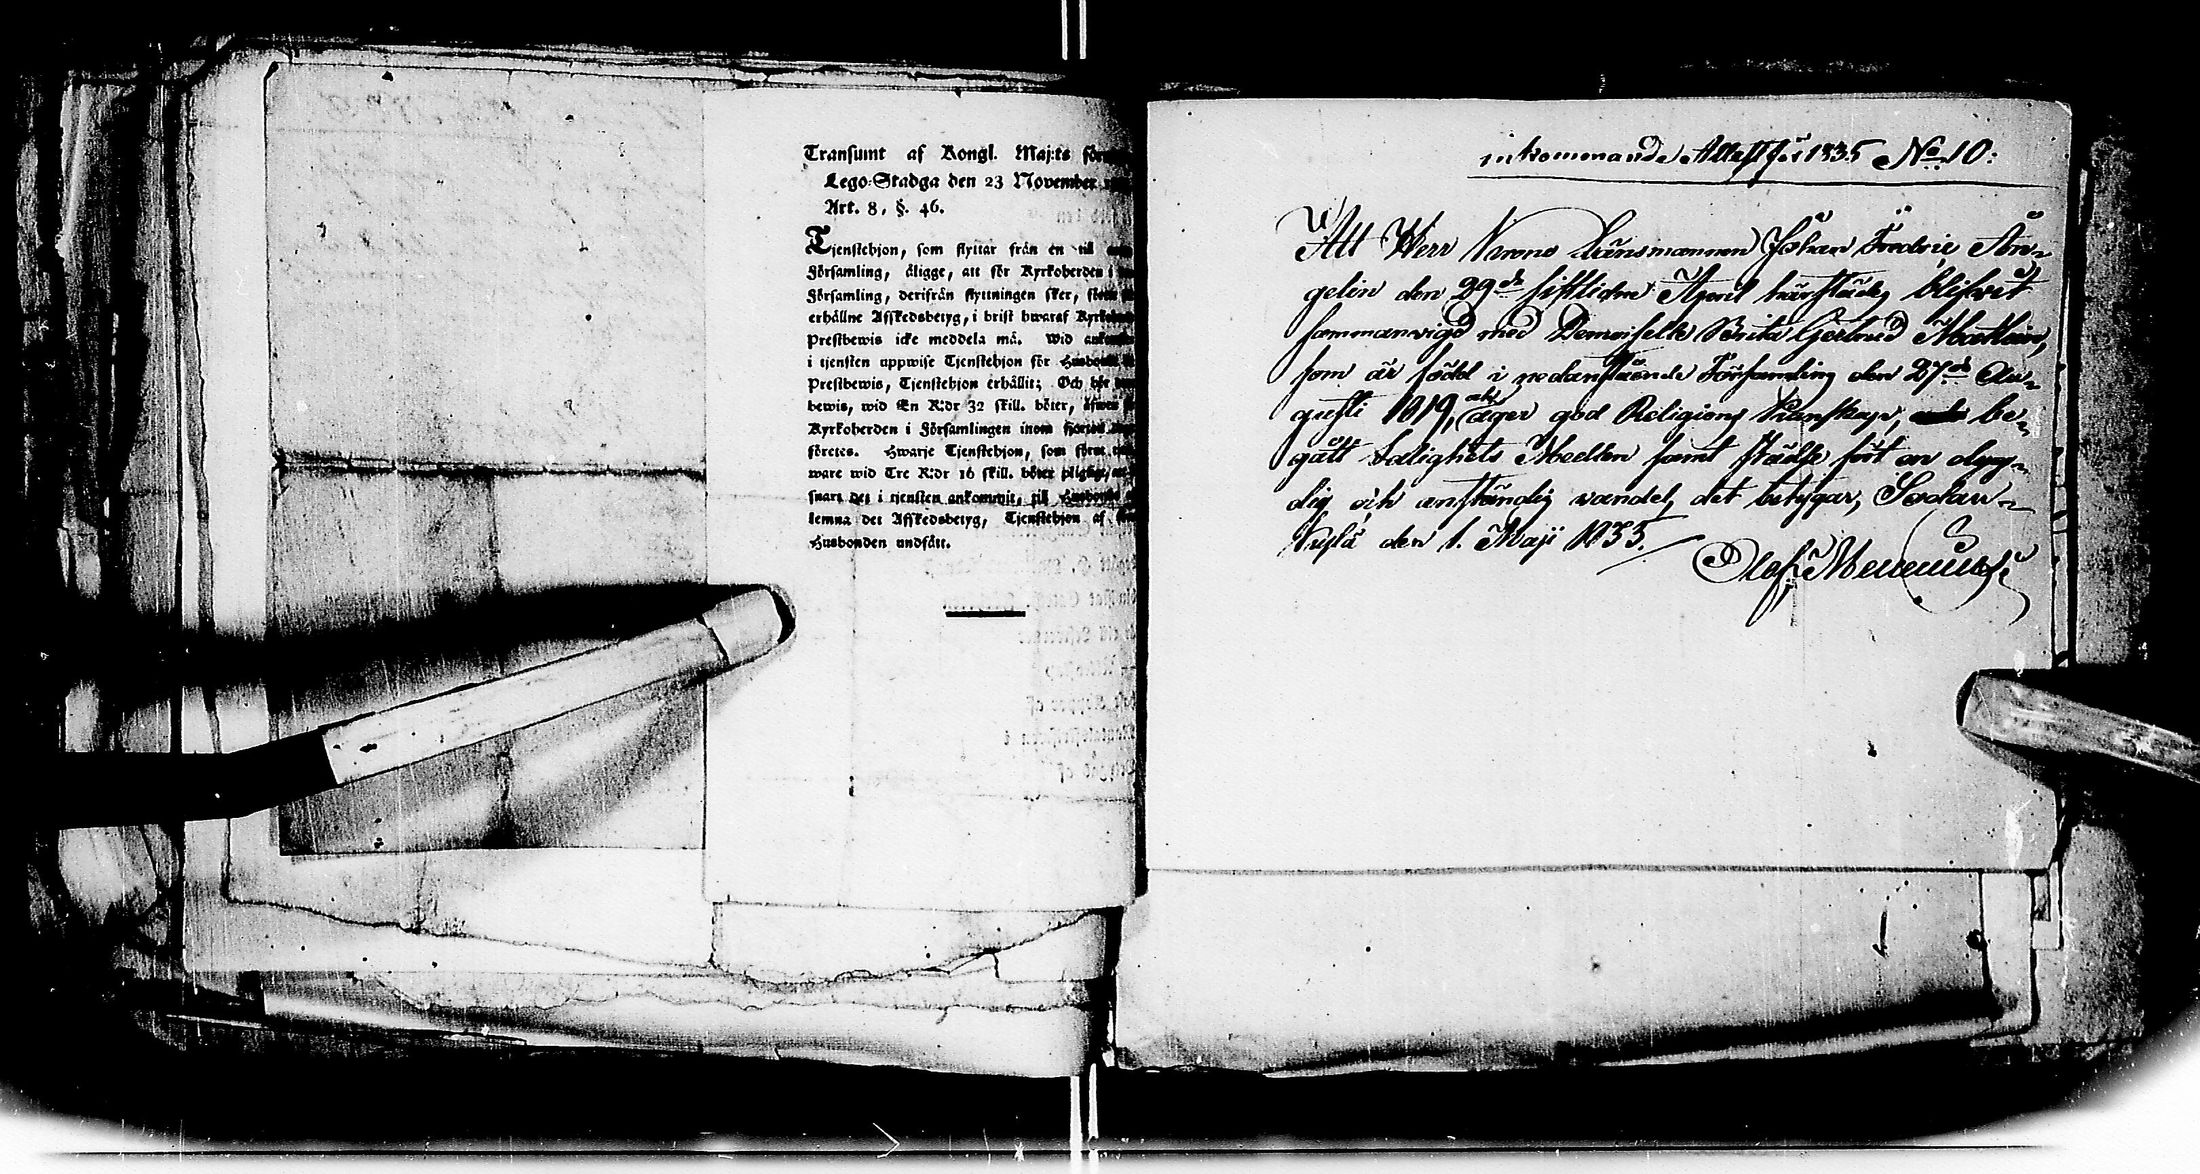 Transumt af Kongl. Maj:ts
Lego-Stadga den 23 November
Art. 8, §. 46.
Tjenstehjon, som flyttar från en til
Församling, åligge, att för Kyrkoherden i
Församling, derifrån flyttningen sker,
erhållne Afskedsbetyg, i brist hwaraf
Prestbewis icke meddela må. Wid
i tjensten uppwise Tjenstehjon för Husbond
Prestbewis, Tjenstehjon erhållit; Och bör
bewis, wid En R:dr 32 skill. böter, äfwen
Kyrkoherden i Församlingen inom
företes. Hwarje Tjenstehjon, som
ware wid Tre R:dr 16 skill. böter pligtigt,
snart det i tjensten ankommit, til Husbonde
lemna det Afskedsbetyg, Tjenstehjon af
Husbonden undfått.
inkommande Attest för 1835 No 10:
Att Herr Krono Länsmannen Johan Fredric
gelin den 29de sistlidne April härstädes blifvit
sammanvigd med Demoiselle Brita Gertrud
som är född i nedanstående Församling den 27de Au-
gusti 1819, äger god Religions Kunskap, be-
gått Salighets Medlen samt städse fört en dyg-
dig och anständig vandel, det betygar, Sodan-
kylä den 1. Maji 1835.
Olof